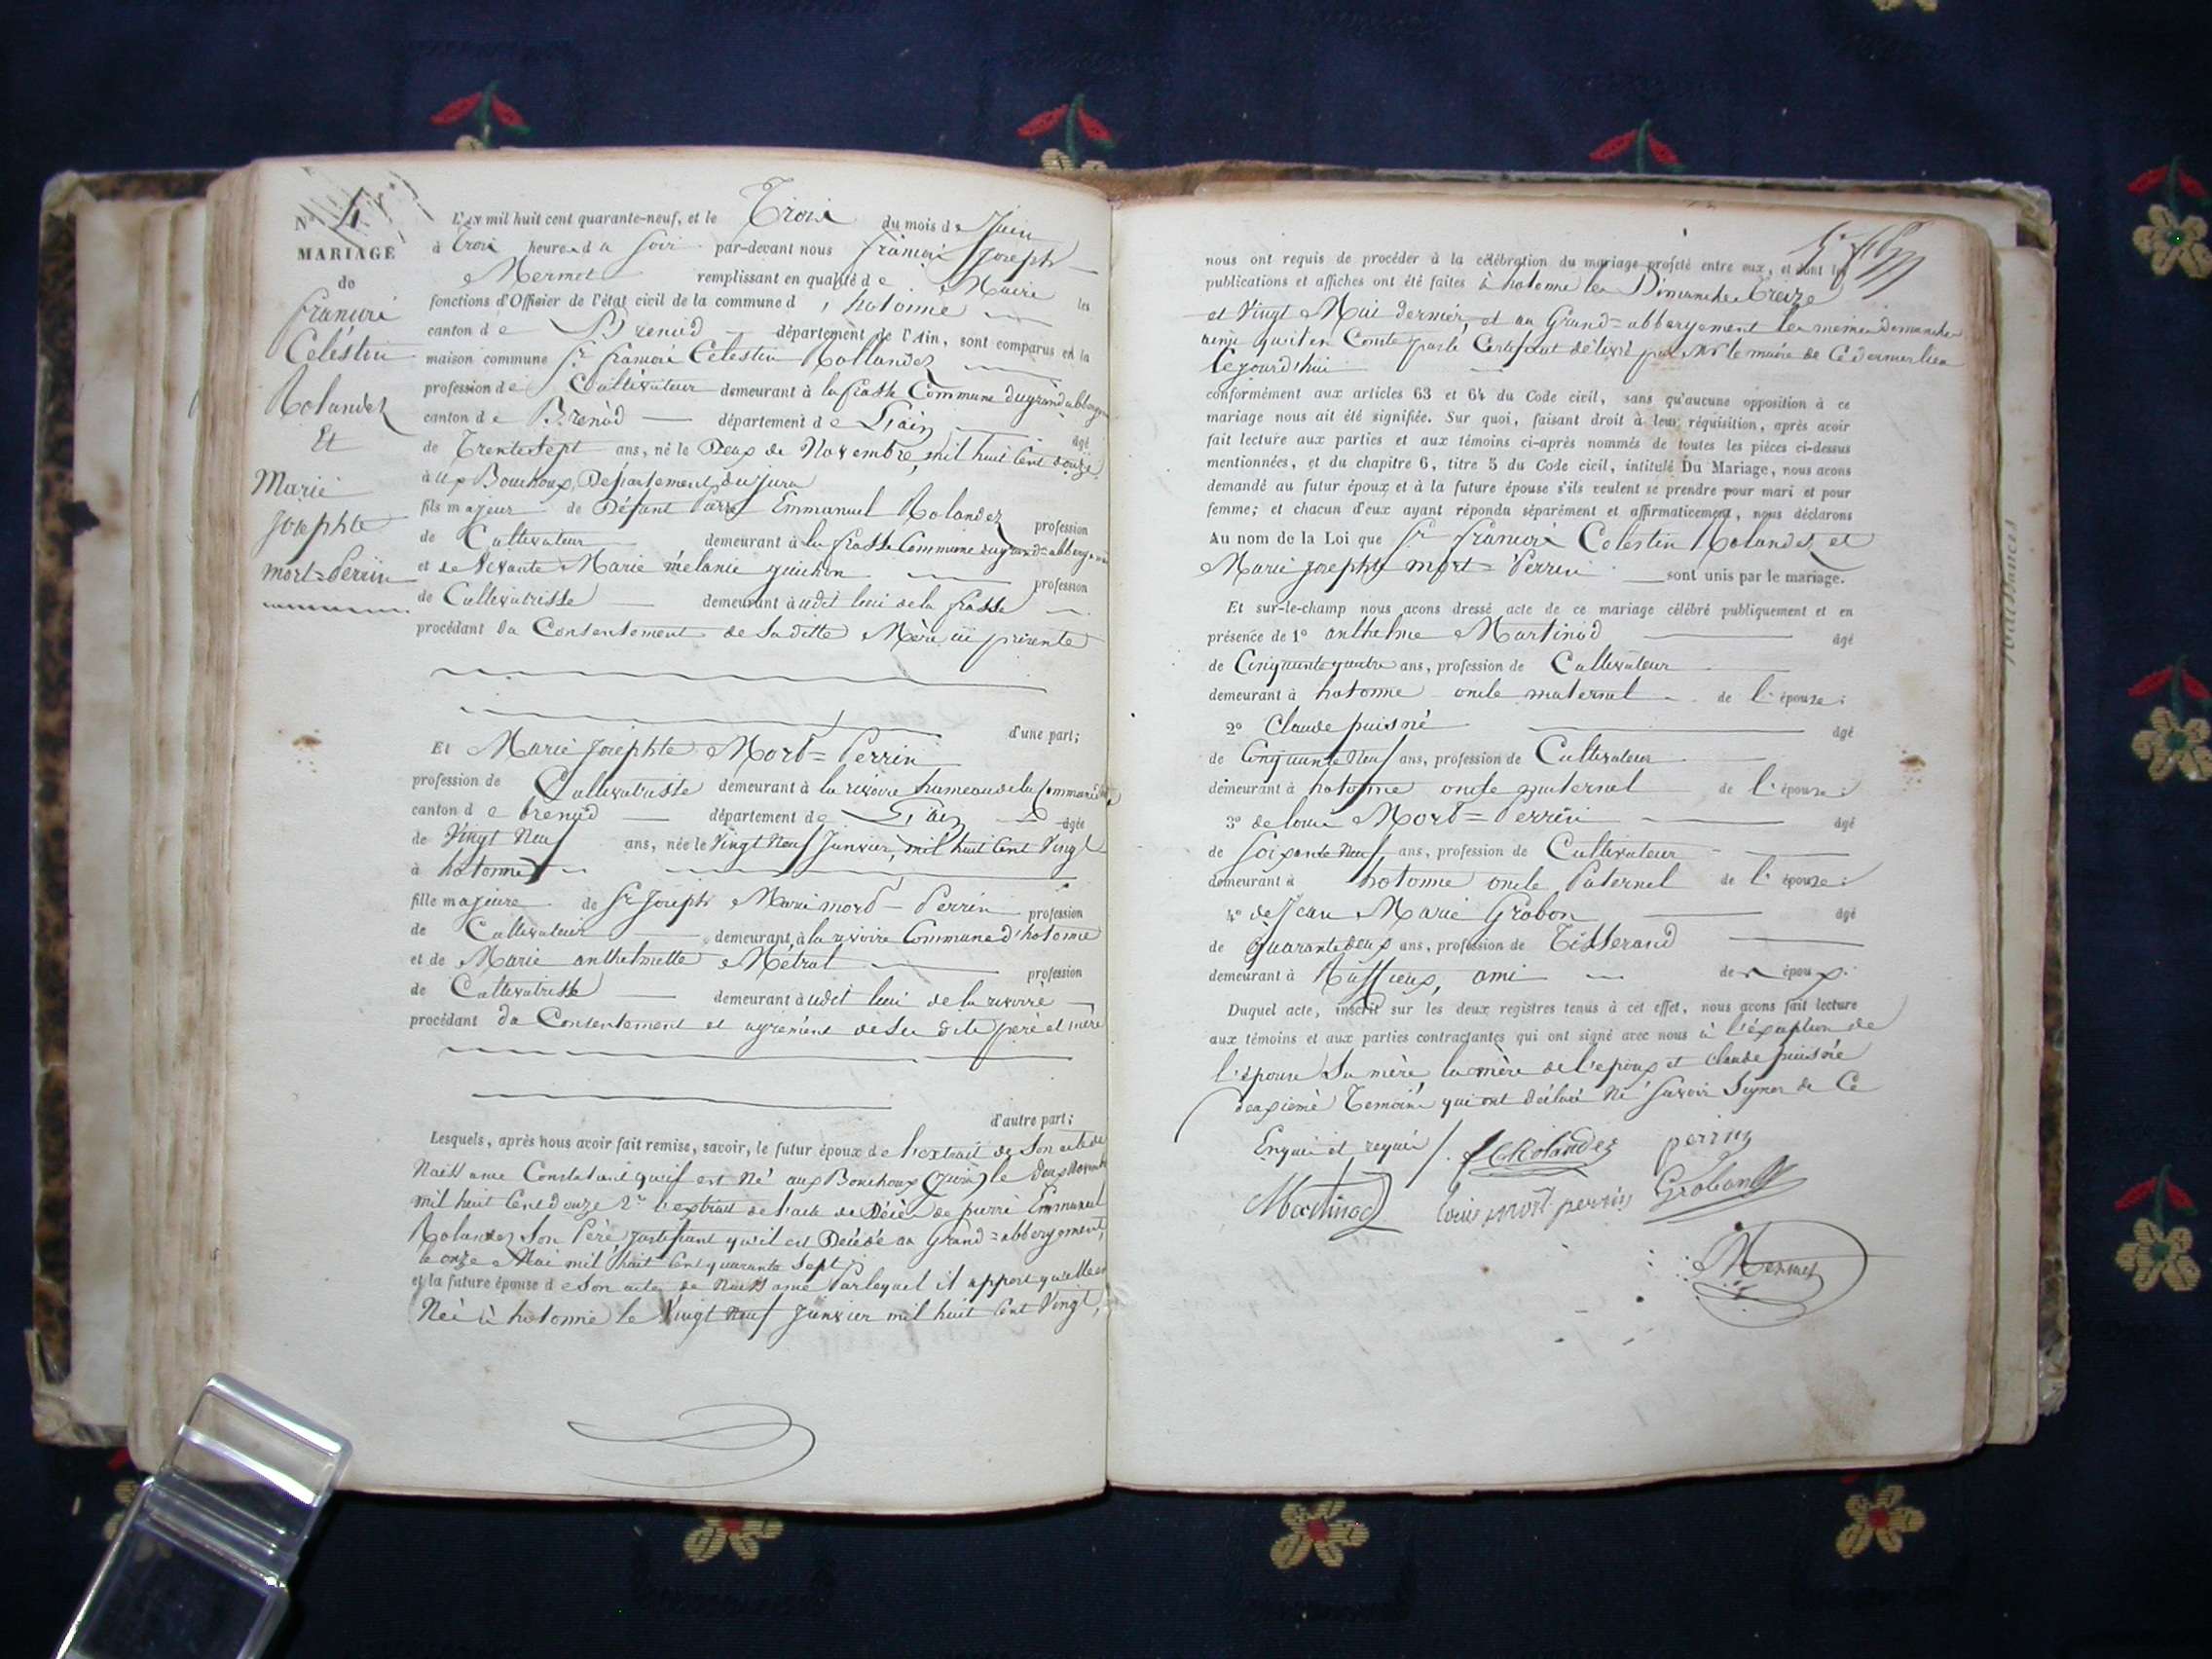 N° 4
MARIAGE
de
françois
Célestin
Rolandez
Et
Marie
Josephte
mort=Perrin
L'an mil huit cent quarante-neuf, et le Trois du mois de Juin
à trois heures du soir par-devant nous françois Joseph
Mermet remplissant en qualité de Maire les
fonctions d'Officier de l'état civil de la commune d'hotonne
canton de Brenod département de l'Ain, sont comparus en la
maison commune Sr françois Celestin Rollandez
profession de Cultivateur demeurant à la frasse Commune du grand abbergement
canton de Brenod département de L'ain âgé
de Trente sept ans, né le Deux de Novembre, mil huit Cent douze
à ux Bouchoux, Département du jura
fils majeur de Défunt Pierre Emmanuel Rolandez profession
de Cultivateur demeurant à la frasse Commune du grand=abbergement
et de Vivante Marie mélanie guichon profession
de Cultivatrisse demeurant à udit lieu de la frasse
procédant du Consentement de sa ditte Mère ici présente
d'une part;
Et Marie Josephte Mort=Perrin
profession de Cultivatrisse demeurant à la rivoire hameau de la Commune
canton de brenod département de L'ain âgée
de Vingt Neuf ans, née le Vingt Neuf Janvier, mil huit Cent Vingt
à hotonne
fille majeure de Sr Joseph Marie mort=Perrin profession
de Cultivateur demeurant à la rivoire Commune d'hotonne
et de Marie anthelmette Métral profession
de Cultivatrisse demeurant à udit lieu de la rivoire
procédant du Consentement et agrément de ses dits père et mère
d'autre part;
Lesquels, après nous avoir fait remise, savoir, le futur époux de l'extrait de son acte de
Naissance Constatant qu'il est Né aux Bouchoux (jura) le deux Novembre
mil huit Cent douze 2° l'extrait de l'acte de Décès de pierre Emmanuel
Rolandez Son Père, justifiant qu'il est Décédé au Grand=abbergement,
le onze Mai mil huit Cent quarante sept;
et la future épouse de son acte de Naissance Par lequel il appert qu'elle est
Née à hotonne le Vingt Neuf Janvier mil huit Cent Vingt,
nous ont requis de procéder à la célébration du mariage projeté entre eux, et dont les
publications et affiches ont été faites à hotonne les Dimanches treize
et Vingt Mai dernier, et au Grand=abbergement les mêmes Dimanches
ainsi qu'il en Conste par le Certificat délivré par Mr le maire de Ce dernier lieu
Cejourd'hui
conformément aux articles 63 et 64 du Code civil, sans qu'aucune opposition à ce
mariage nous ait été signifiée. Sur quoi, faisant droit à leur réquisition, après avoir
fait lecture aux parties et aux témoins ci-après nommés de toutes les pièces ci-dessus
mentionnées, et du chapitre 6, titre 5 du Code civil, intitulé Du Mariage, nous avons
demandé au futur époux et à la future épouse s'ils veulent se prendre pour mari et pour
femme; et chacun d'eux ayant répondu séparément et affirmativement, nous déclarons
Au nom de la Loi que Sr françois Celestin Rolandez et
Marie josephte mort=Perrin sont unis par le mariage.
Et sur-le-champ nous avons dressé acte de ce mariage célébré publiquement et en
présence de 1° anthelme Martinod âgé
de Cinquante quatre ans, profession de Cultivateur
demeurant à hotonne oncle maternel de l'épouse;
2° Claude puisné âgé
de Cinquante Neuf ans, profession de Cultivateur
demeurant à hotonne oncle maternel de l'épouse;
3° de louis Mort=Perrin âgé
de Soixante Neuf ans, profession de Cultivateur
demeurant à hotonne oncle Paternel de l'épouse;
4° de Jean Marie Grobon âgé
de Quarante deux ans, profession de Tisserand
demeurant à Ruffieux, ami de époux.
Duquel acte, inscrit sur les deux registres tenus à cet effet, nous avons fait lecture
aux témoins et aux parties contractantes qui ont signé avec nous à l'exception de
l'épouse Sa mère la mère de l'époux et Claude puisné
deuxième Témoins qui ont déclaré Ne Savoir Signer de Ce
Enquis et requis /. Rolandez perrin
Martinod louis mort perrin Grobon
Mermet
Naissances